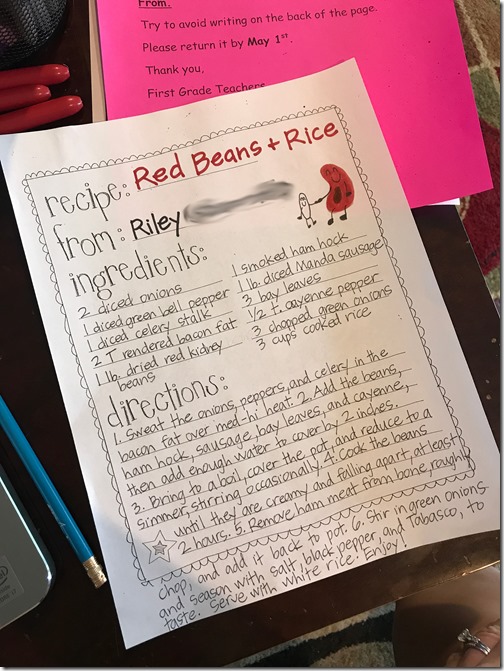 From:
Try to avoid writing on the back of the page.
Please return it by May 1st.
Thank you,
First Grade Teachers
recipe: Red Beans + Rice
from: Riley
ingredients:
2 diced onions
1 diced green bell pepper
1 diced celery stalk
2 T rendered bacon fat
1 lb. dried red kidney
beans
1 smoked ham hock
1 lb. diced Manda sausage
3 bay leaves
1/2 t. cayenne pepper
3 chopped green onions
3 cups cooked rice
directions:
1. Sweat the onions, peppers, and celery in the
bacon fat over med-hi heat. 2. Add the beans,
ham hock, sausage, bay leaves, and cayenne,
then add enough water to cover by 2 inches.
3. Bring to a boil, cover the pot, and reduce to a
simmer, stirring occasionally. 4. Cook the beans
until they are creamy and falling apart, at least
2 hours. 5. Remove ham meat from bone, roughly
chop, and add it back to pot. 6. Stir in green onions
and season with salt, black pepper, and Tabasco, to
taste. Serve with white rice. Enjoy!